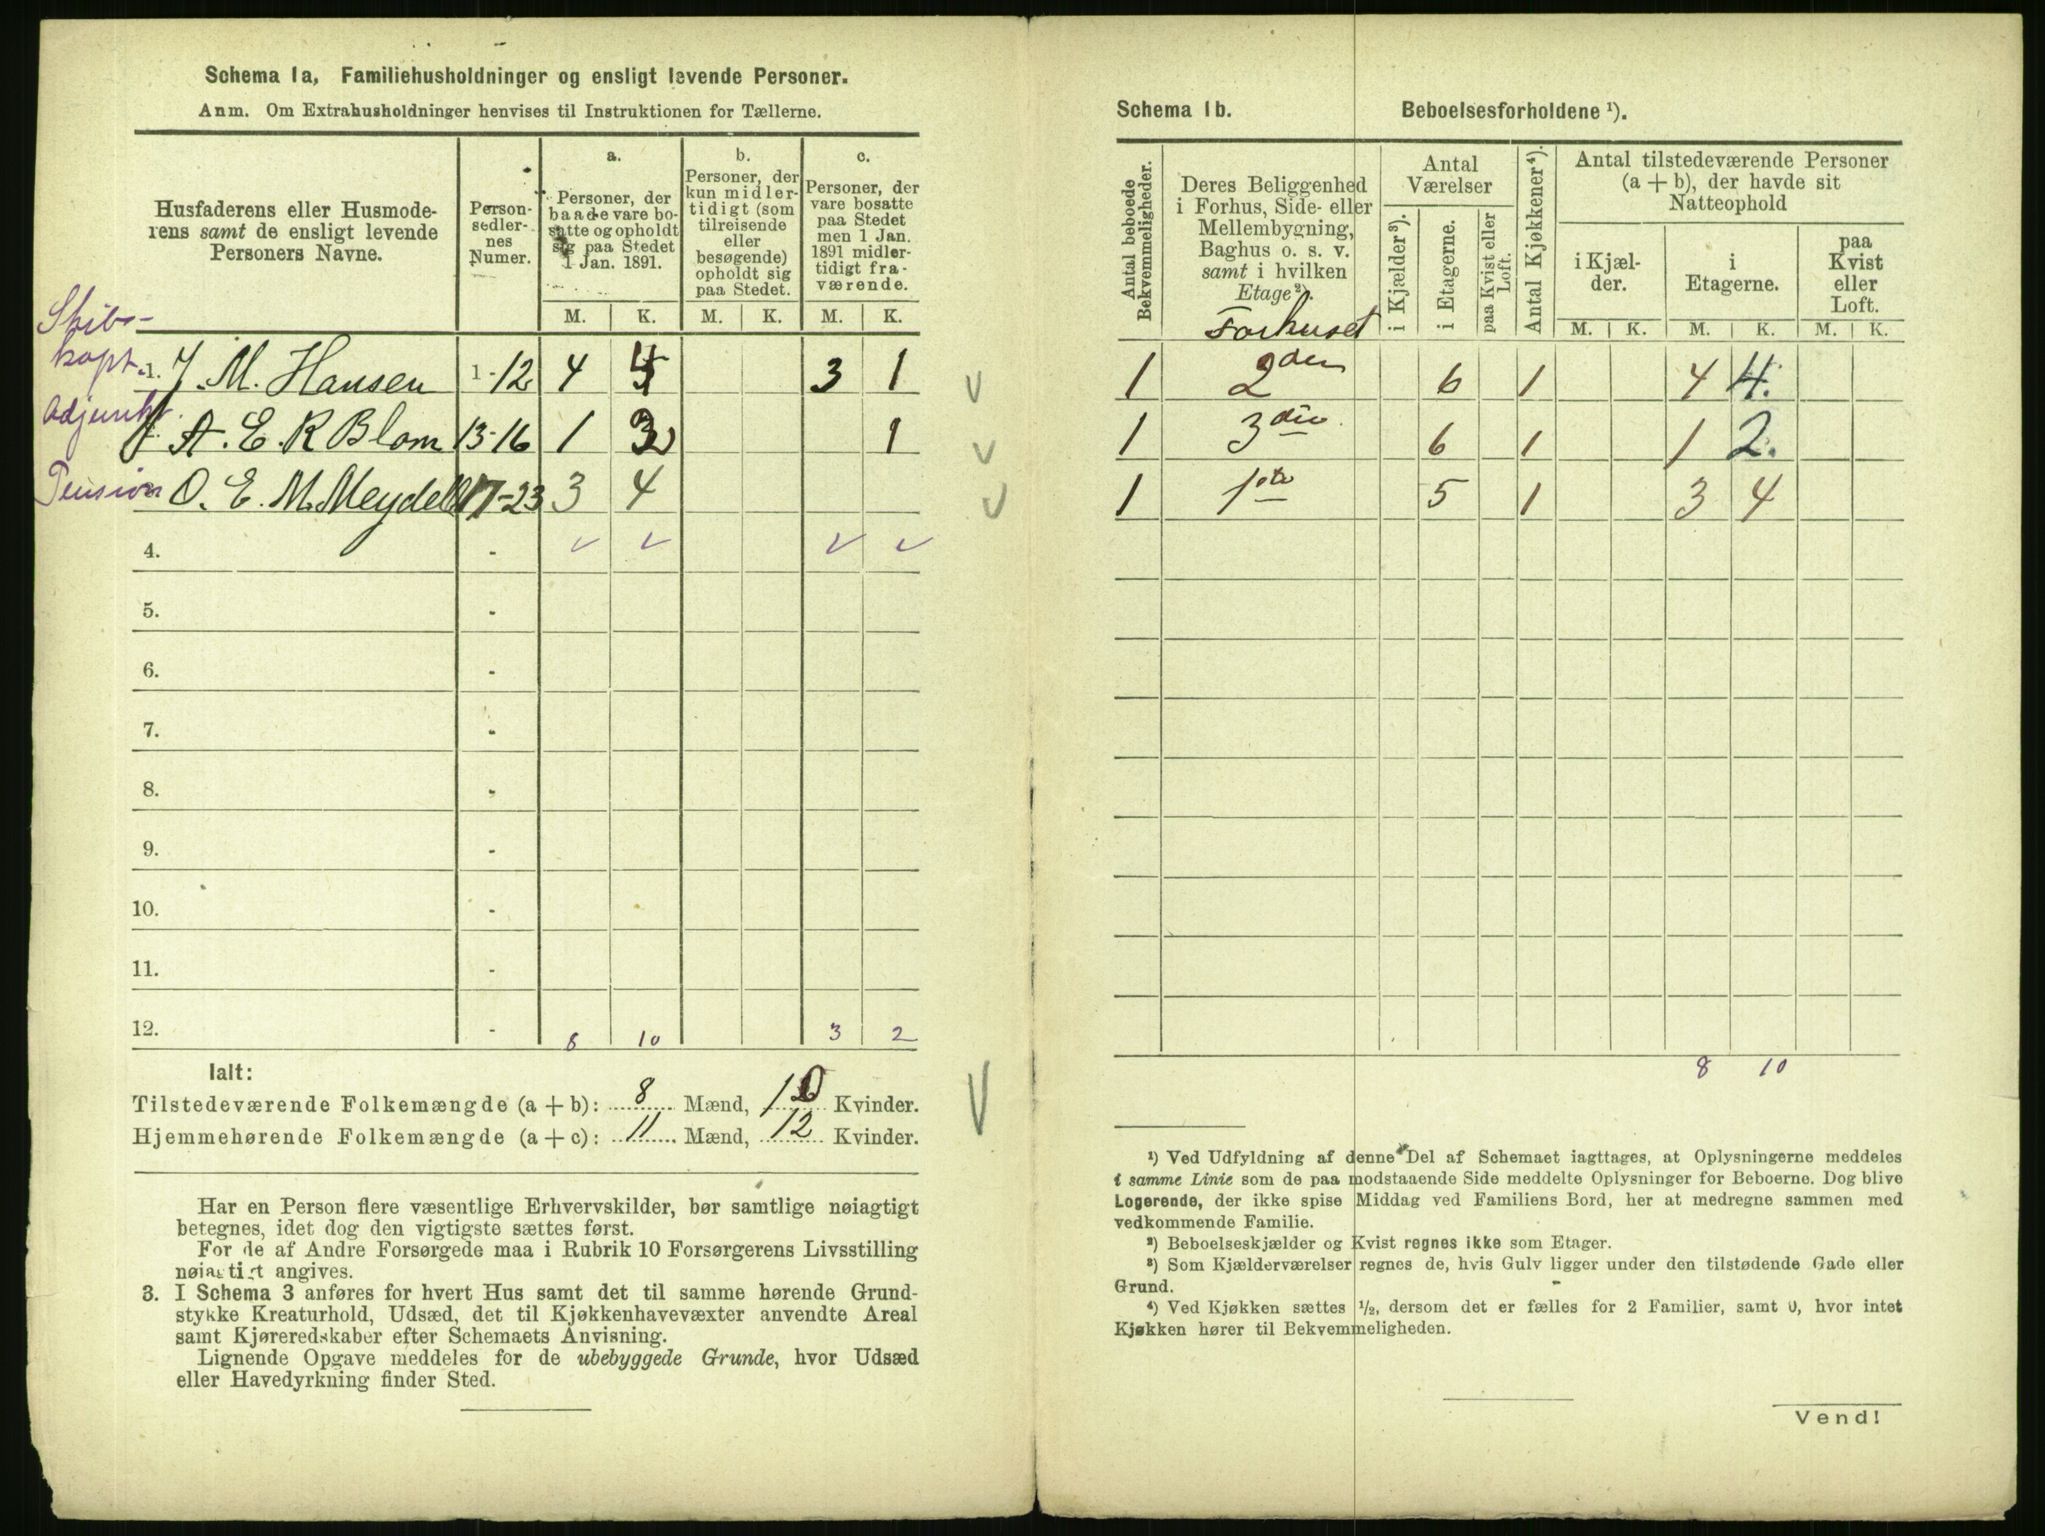 Schema 1a, Familiehusholdninger og ensligt levende Personer.
Anm. Om Extrahusholdninger henvises til Instruktionen for Tællerne.
Husfaderens eller Husmode-
rens samt de ensligt levende
Personers Navne.
Person-
sedler-
nes
Numer.
a.
Personer, der
baade vare bo-
satte og opholdt
sig paa Stedet
1 Jan. 1891.
b.
Personer, der
kun midler-
tidigt (som
tilreisende
eller
besøgende)
opholdt sig
paa Stedet.
c.
Personer, der
vare bosatte
paa Stedet
men 1 Jan.
1891 midler-
tidigt fra-
værende.
M. K. M. K. M. K.
Skibs-
kapt. 1. J. M. Hansen 1-12 4 4 3 1
Adjunkt A. E. R Blom 13-16 1 2 1
Pension O. E. M. Meydell 17-23 3 4
4. -
5. -
6. -
7. -
8. -
9. -
10. -
11. -
12. - 8 10 3 2
Ialt:
Tilstedeværende Folkemængde (a + b): 8 Mænd, 10 Kvinder.
Hjemmehørende Folkemængde (a + c): 11 Mænd, 12 Kvinder.
Har en Person flere væsentlige Erhvervskilder, bør samtlige nøiagtigt
betegnes, idet dog den vigtigste sættes først.
For de af Andre Forsørgede maa i Rubrik 10 Forsørgerens Livsstilling
nøiagtigt angives.
3. I Schema 3 anføres for hvert Hus samt det til samme hørende Grund-
stykke Kreaturhold, Udsæd, det til Kjøkkenhavevæxter anvendte Areal
samt Kjøreredskaber efter Schemaets Anvisning.
Lignende Opgave meddeles for de ubebyggede Grunde, hvor Udsæd
eller Havedyrkning finder Sted.
Schema 1b. Beboelsesforholdene ¹).
Antal beboede
Bekvemmeligheder.
Deres Beliggenhed
i Forhus, Side- eller
Mellembygning,
Baghus o. s. v.
samt i hvilken
Etage²).
Forhuset
Antal
Værelser
i Kjælder³).
i Etagerne.
paa Kvist eller
Loft.
Antal Kjøkkener⁴).
Antal tilstedeværende Personer
(a + b), der havde sit
Natteophold
i Kjæl-
der.
i
Etagerne.
paa
Kvist
eller
Loft.
M. K. M. K. M. K.
1 2den 6 1 4 4.
1 3die 6 1 1 2.
1 1ste 5 1 3 4
8 10
¹) Ved Udfyldning af denne Del af Schemaet iagttages, at Oplysningerne meddeles
i samme Linie som de paa modstaaende Side meddelte Oplysninger for Beboerne. Dog blive
Logerende, der ikke spise Middag ved Familiens Bord, her at medregne sammen med
vedkommende Familie.
²) Beboelseskjælder og Kvist regnes ikke som Etager.
³) Som Kjælderværelser regnes de, hvis Gulv ligger under den tilstødende Gade eller
Grund.
⁴) Ved Kjøkken sættes ½, dersom det er fælles for 2 Familier, samt 0, hvor intet
Kjøkken hører til Bekvemmeligheden.
Vend!